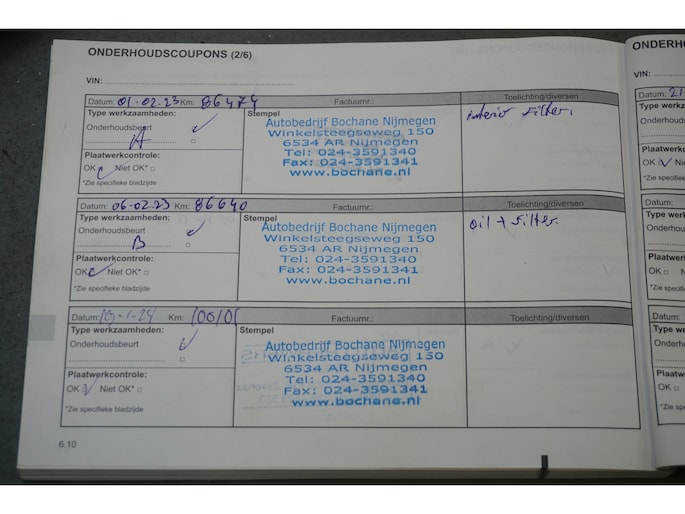 ONDERHOUDSCOUPONS (2/6)
VIN:
Datum: 01-02-23 Km: 86474 Factuurnr.: Toelichting/diversen
Type werkzaamheden: Stempel interior Filter.
Onderhoudsbeurt
A
Plaatwerkcontrole:
OK Niet OK*
*Zie specifieke bladzijde
Autobedrijf Bochane Nijmegen
Winkelsteegseweg 150
6534 AR Nijmegen
Tel: 024-3591340
Fax: 024-3591341
www.bochane.nl
Datum: 06-02-23 Km: 86640 Factuurnr.: Toelichting/diversen
Type werkzaamheden: Stempel oil + Filter.
Onderhoudsbeurt
B
Plaatwerkcontrole:
OK Niet OK*
*Zie specifieke bladzijde
Autobedrijf Bochane Nijmegen
Winkelsteegseweg 150
6534 AR Nijmegen
Tel: 024-3591340
Fax: 024-3591341
www.bochane.nl
Datum: Km: Factuurnr.: Toelichting/diversen
Type werkzaamheden: Stempel
Onderhoudsbeurt
Plaatwerkcontrole:
OK Niet OK*
*Zie specifieke bladzijde
Autobedrijf Bochane Nijmegen
Winkelsteegseweg 150
6534 AR Nijmegen
Tel: 024-3591340
Fax: 024-3591341
www.bochane.nl
6.10
ONDERH
VIN:
Datum: 21
Type we
Onderhou
Plaatwerk
OK Ni
*Zie speci
Datum:
Type wer
Onderhoud
Plaatwerk
OK Nie
*Zie specif
Datum:
Type wer
Onderhoud
Plaatwerk
OK Nie
*Zie specifi